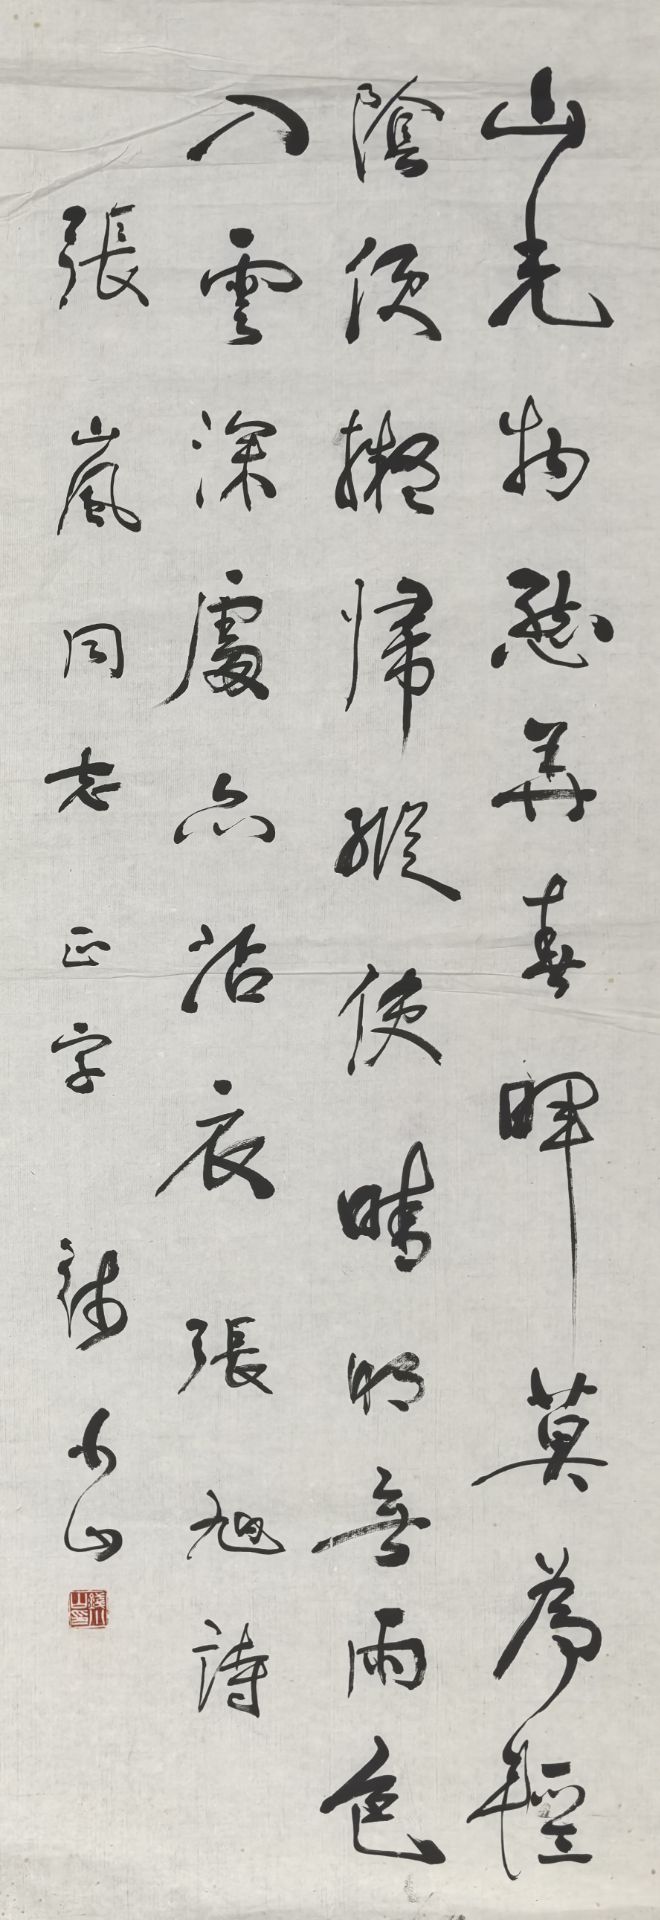 山光物態弄春暉莫為輕
陰便擬歸縱使晴明無雨色
入雲深處亦沾衣張旭詩
張嵐同志正字錢小山